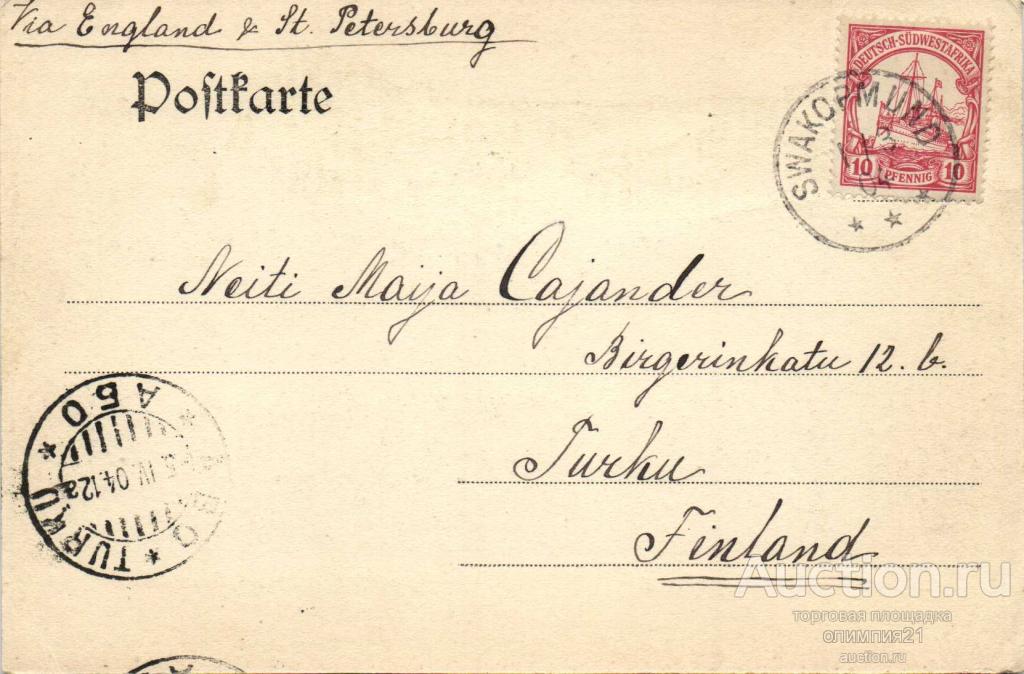 Via England & St. Petersburg
Postkarte
DEUTSCH-SÜDWESTAFRIKA
10 PFENNIG 10
SWAKOPMUND
Neiti Maija Cajander
Birgerinkatu 12. b.
Turku
Finland
АБО
IV. 04.12a
TURKU
Auction.ru
торговая площадка
олимпия21
auction.ru